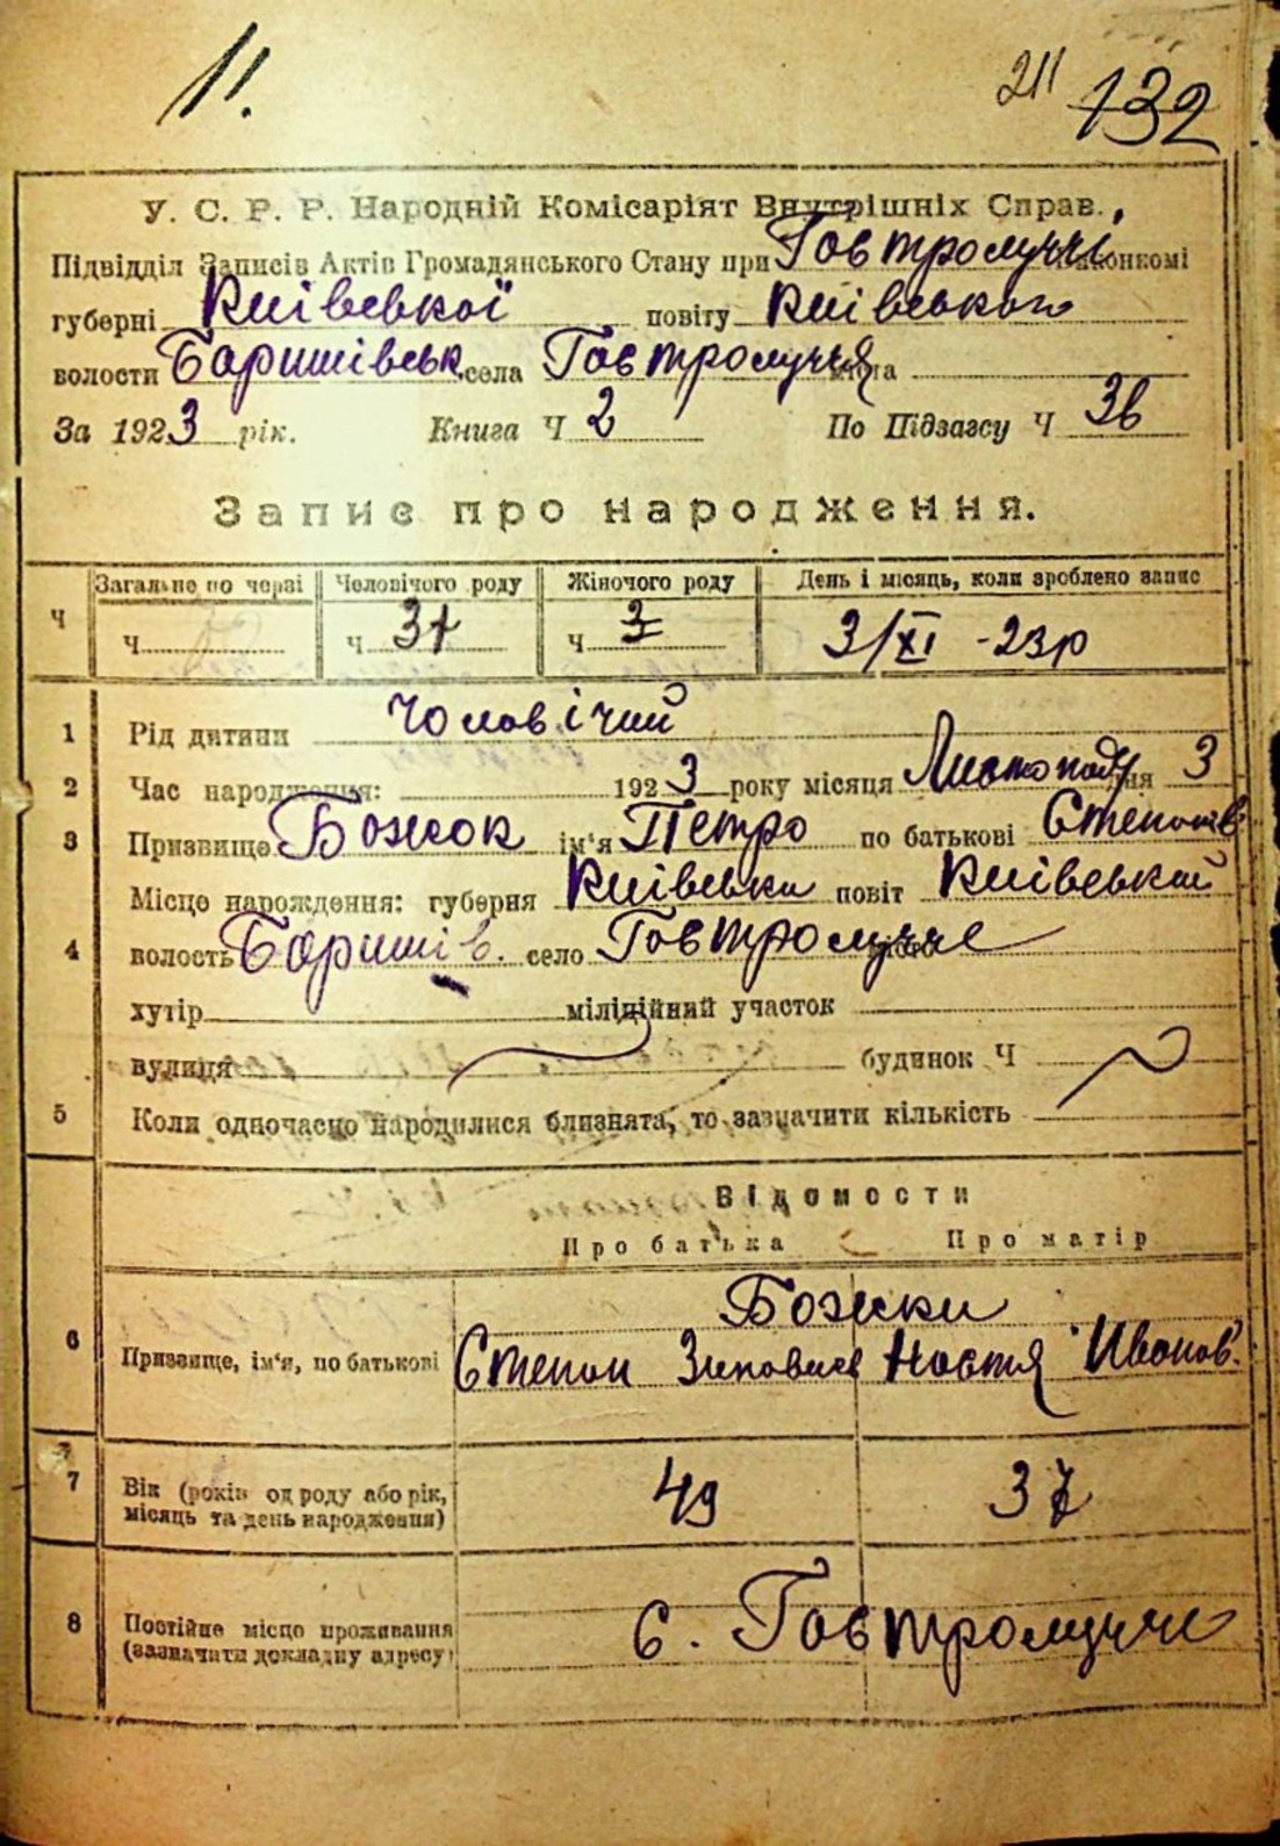 11.
211 132
У. С. Р. Р. Народній Комісаріят Внутрішніх Справ.
Підвідділ Записів Актів Громадянського Стану при Гостролуччі конкомі
губерні Київської повіту Київського
волости Баришівськ. села Гостролуччя міста
За 1923 рік. Книга Ч 2 По Підзагсу Ч
Запис про народження.
Загальне по черзі Человічого роду Жіночого роду День і місяць, коли зроблено запис
Ч Ч Ч 37 Ч 3/XI -23р
1 Рід дитини Чоловічий
2 Час народження: 1923 року місяця Листопаду дня 3
3 Призвище Божок ім'я Петро по батькові Степанів.
Місце нарождення: губерня Київська повіт Київський
4 волость Баришів. село Гостролучче
хутір міліційний участок
вулиця будинок Ч
5 Коли одночасно народилися близнята, то зазначити кількість
Відомости
Про батька Про матір
Божки
6 Призвище, ім'я, по батькові Степан Зиновиев Настя Иванов.
7 Вік (років од роду або рік, 49 37
місяць та день народження)
8 Постійне місцо проживання с. Гостролучче
(зазначити докладну адресу)